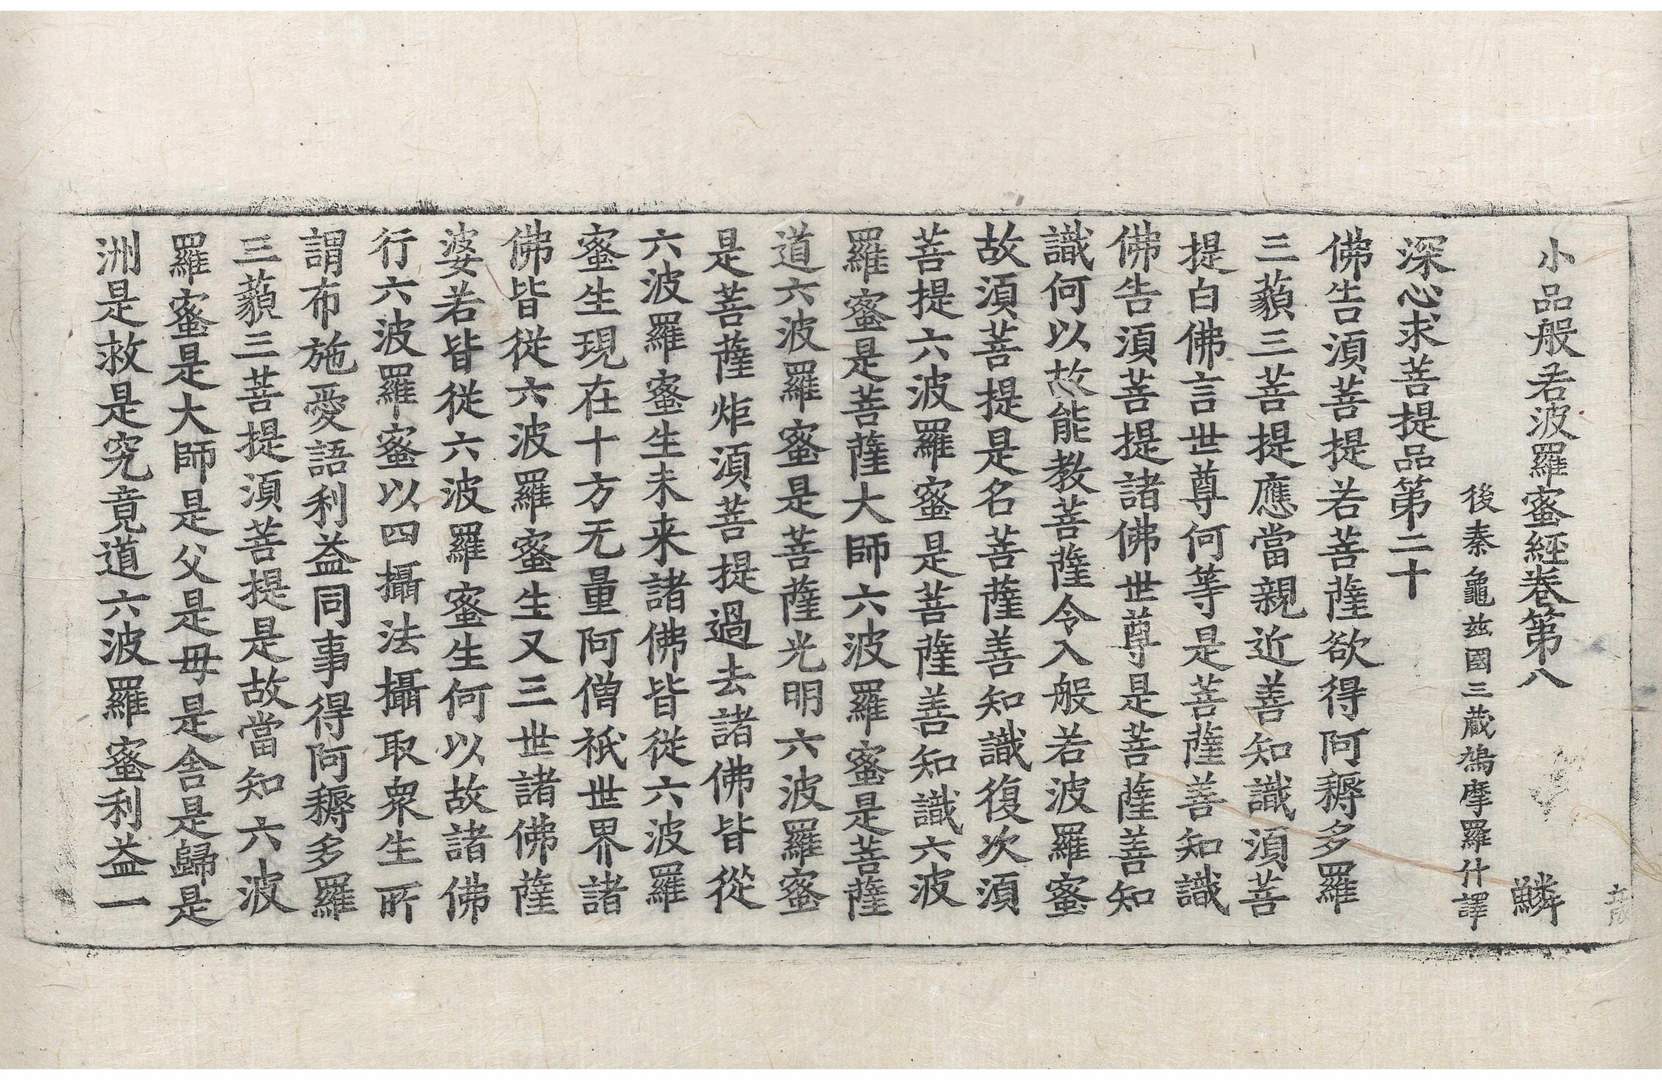 小品般若波羅蜜經卷第八 鱗
後秦龜玆國三蔵鳩摩羅什譯
深心求菩提品第二十
佛告須菩提若菩薩欲得阿耨多羅
三藐三菩提應當親近善知識須菩
提白佛言世尊何等是菩薩善知識
佛告須菩提諸佛世尊是菩薩善知
識何以故能教菩薩令入般若波羅蜜
故須菩提是名菩薩善知識復次須
菩提六波羅蜜是菩薩善知識六波
羅蜜是菩薩大師六波羅蜜是菩薩
道六波羅蜜是菩薩光明六波羅蜜
是菩薩炬須菩提過去諸佛皆從
六波羅蜜生未来諸佛皆從六波羅
蜜生現在十方无量阿僧祇世界諸
佛皆從六波羅蜜生又三世諸佛薩
婆若皆從六波羅蜜生何以故諸佛
行六波羅蜜以四攝法攝取衆生所
謂布施愛語利益同事得阿耨多羅
三藐三菩提須菩提是故當知六波
羅蜜是大師是父是母是舎是歸是
洲是救是究竟道六波羅蜜利益一